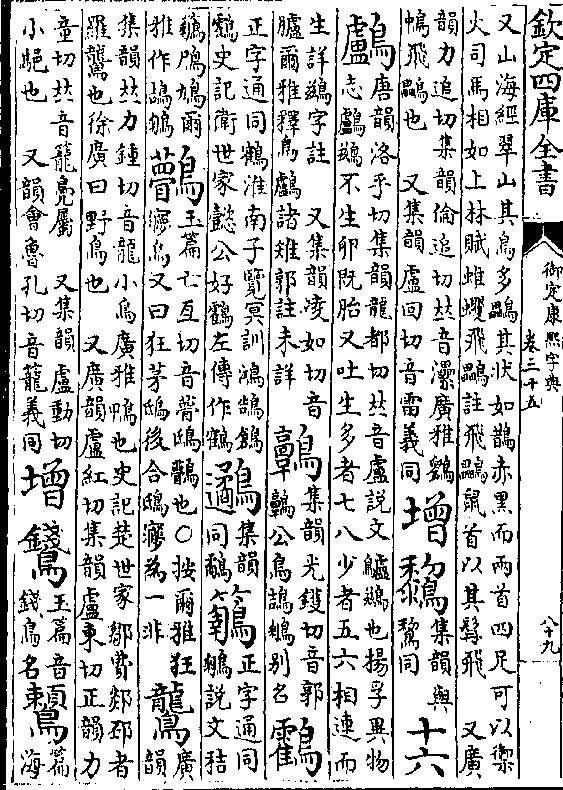 欽定四庫全書
御定康熙字典
卷三十五
八十九
又山海經翠山其鳥多鸓其狀如鵲赤黑而兩首四足可以禦
火司馬相如上林賦蜼蠼飛鸓註飛鸓鼠首以其髯飛 又廣
韻力追切集韻倫追切𠀤音灅廣雅
飛鸓也 又集韻盧回切音雷義同
增 集韻與
同
十六
鸕 唐韻洛乎切集韻龍都切𠀤音盧說文鸕鷀也揚孚異物
志鸕鷀不生卵既胎又吐生多者七八少者五六相連而
生詳鷀字註 又集韻凌如切音
臚爾雅釋鳥鸕諸雉郭註未詳
集韻光鑊切音郭
公鳥鴣别名
鸖
正字通同鶴淮南子覽冥訓鴻鵠鶬
鸖史記衛世家懿公好鸖左傳作鶴
集韻
同鷸
正字通同
鵴說文秸
鵴鳲鳩爾
雅作鴶鵴
玉篇亡亘切音鴟也○按爾雅狂
㝱鳥又曰狂茅鴟後合鴟㝱為一非
鸗 廣
韻
集韻𠀤力鍾切音龍小鳥廣雅鴨也史記楚世家鄒費郯邳者
羅鸗也徐廣曰野鳥也 又廣韻盧紅切集韻盧東切正韻力
童切𠀤音籠鳧屬 又集韻盧動切
小也 又韻會魯孔切音籠義同
增 玉篇音
錢鳥名
篇
海